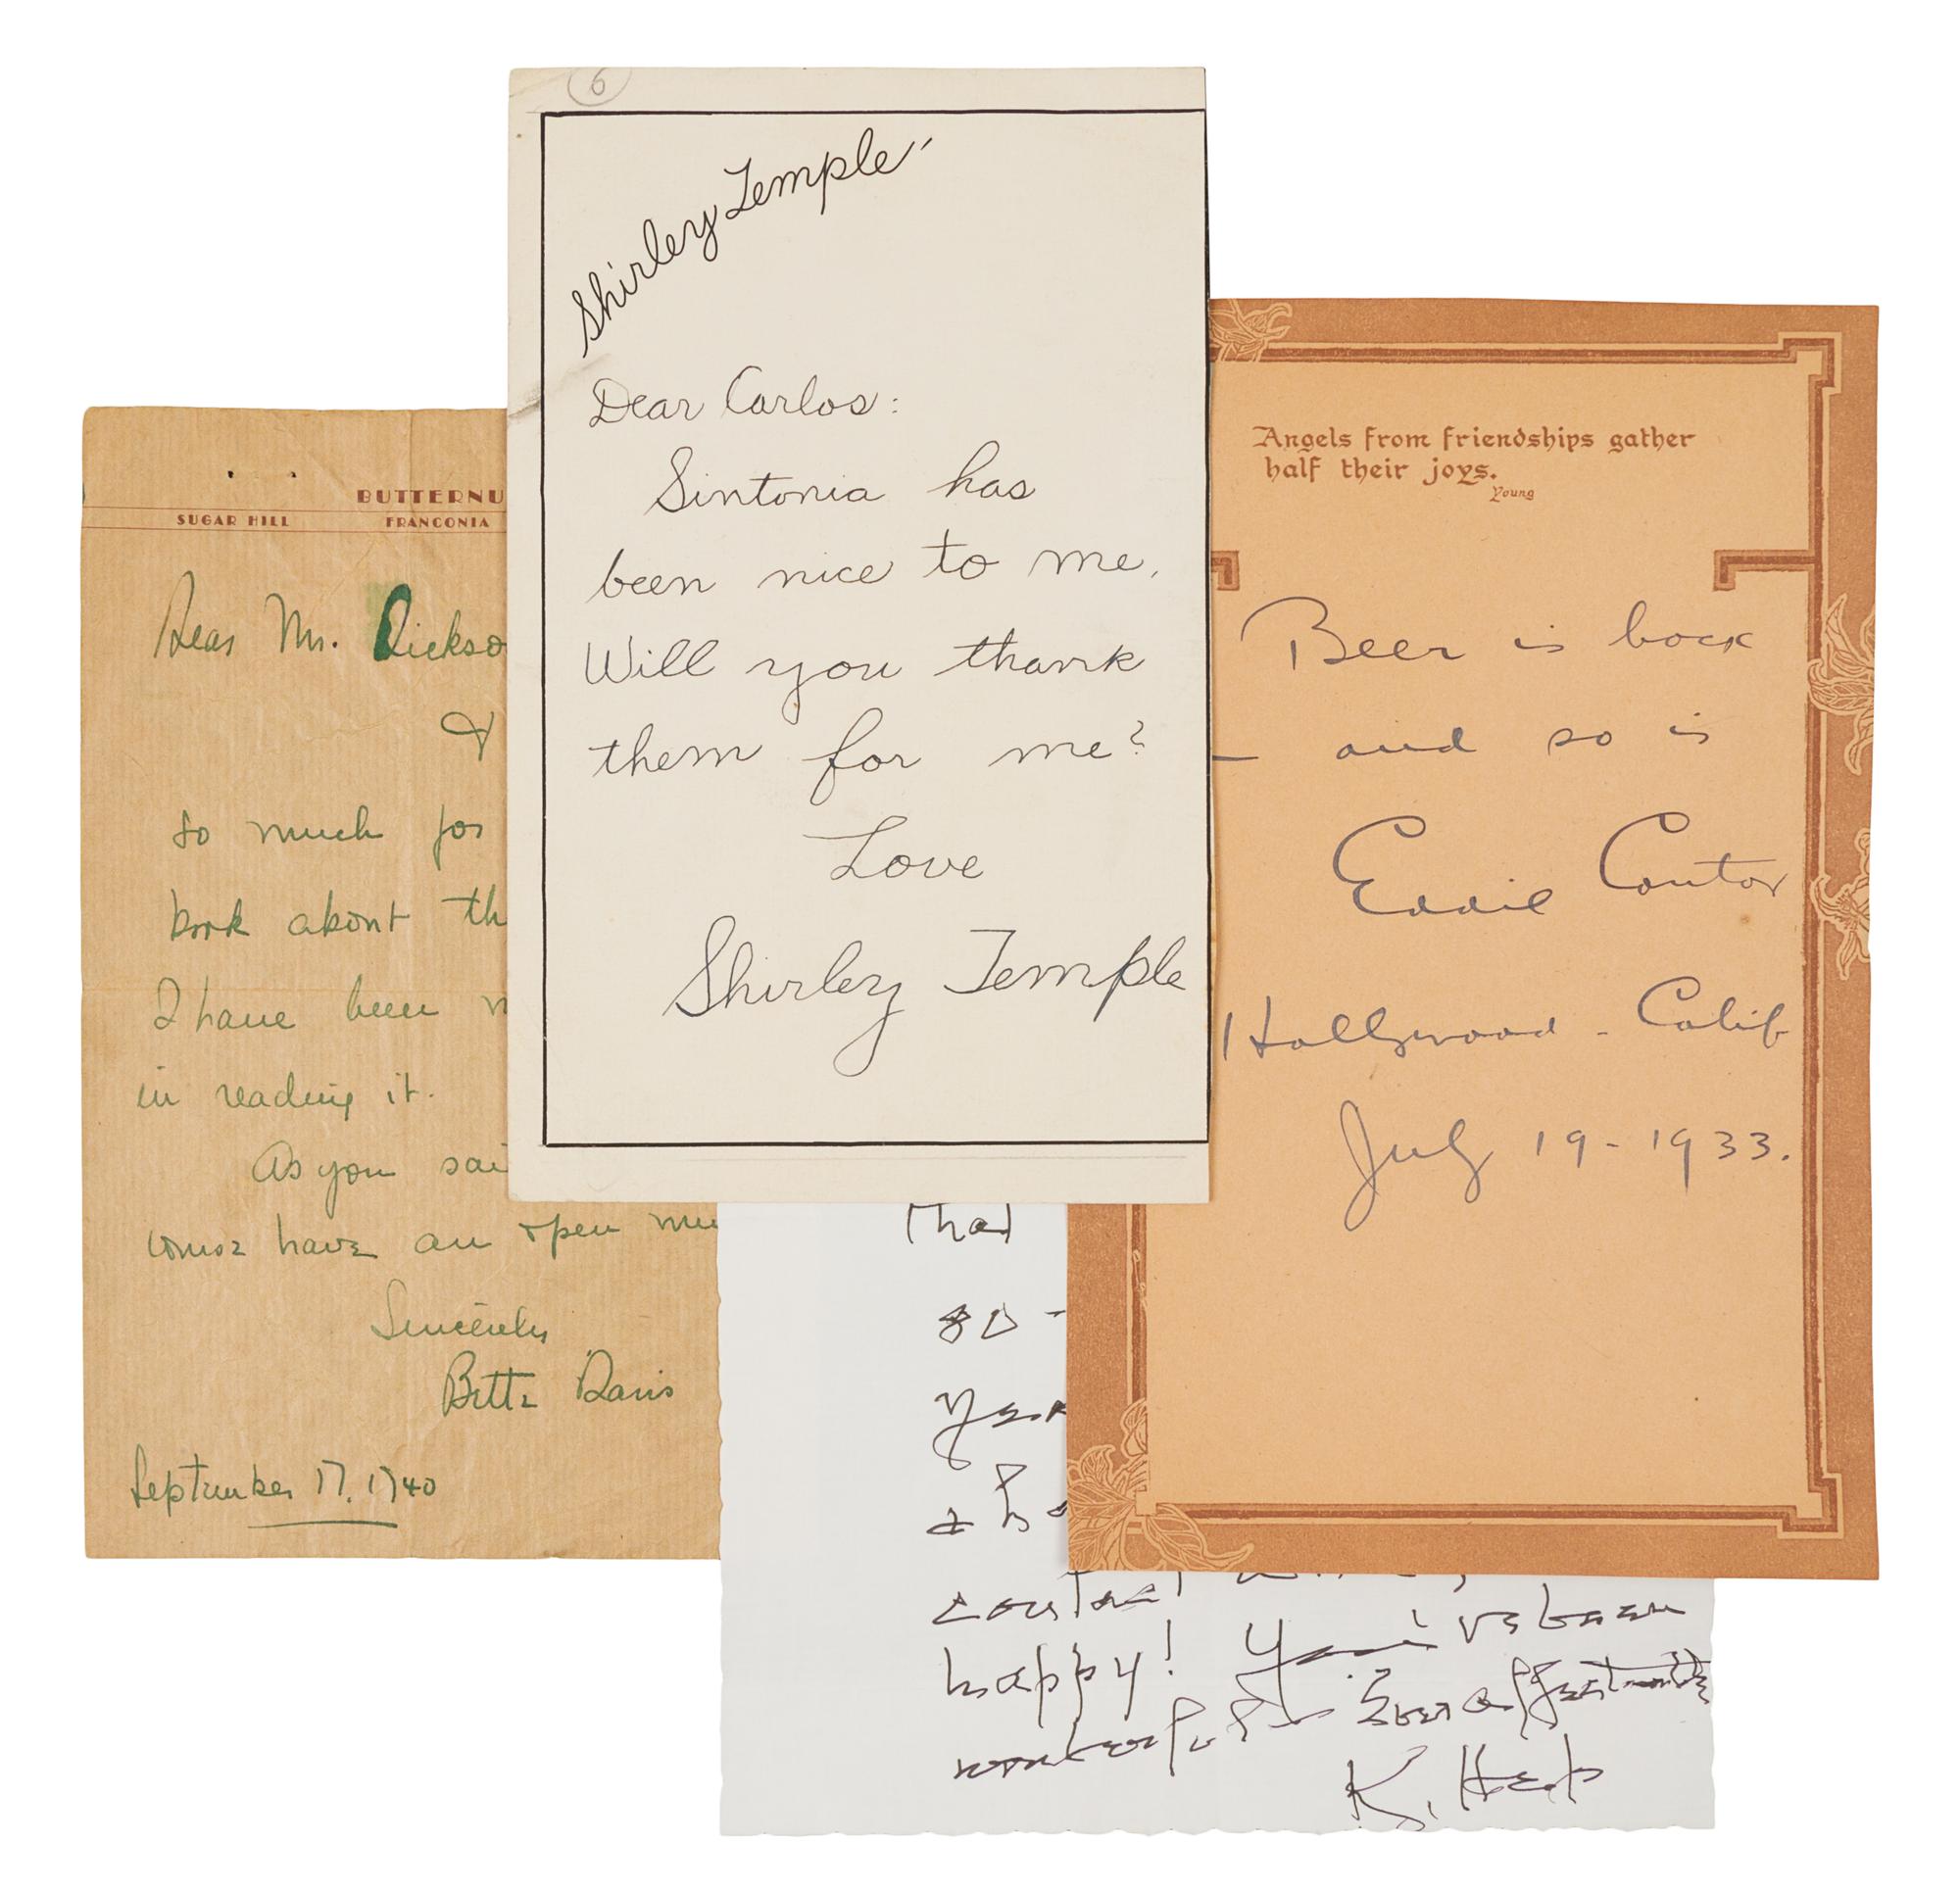 6
Shirley Temple
Dear Carlos:
Sintonia has
been nice to me.
Will you thank
them for me?
Love
Shirley Temple
BUTTERNU
SUGAR HILL FRANCONIA
Dear Mr. Dickso
so much for
book about th
I have been
in reading it.
As you sai
course have an open
Sincerely
Bette Davis
September 17, 1940
Angels from friendships gather
half their joys.
Young
Beer is back
— and so is
Eddie Cantor
Hollywood - Calif
July 19-1933.
had
so -
year
contact
happy! You've been
wonderful - Ever affectionately
K. Hep